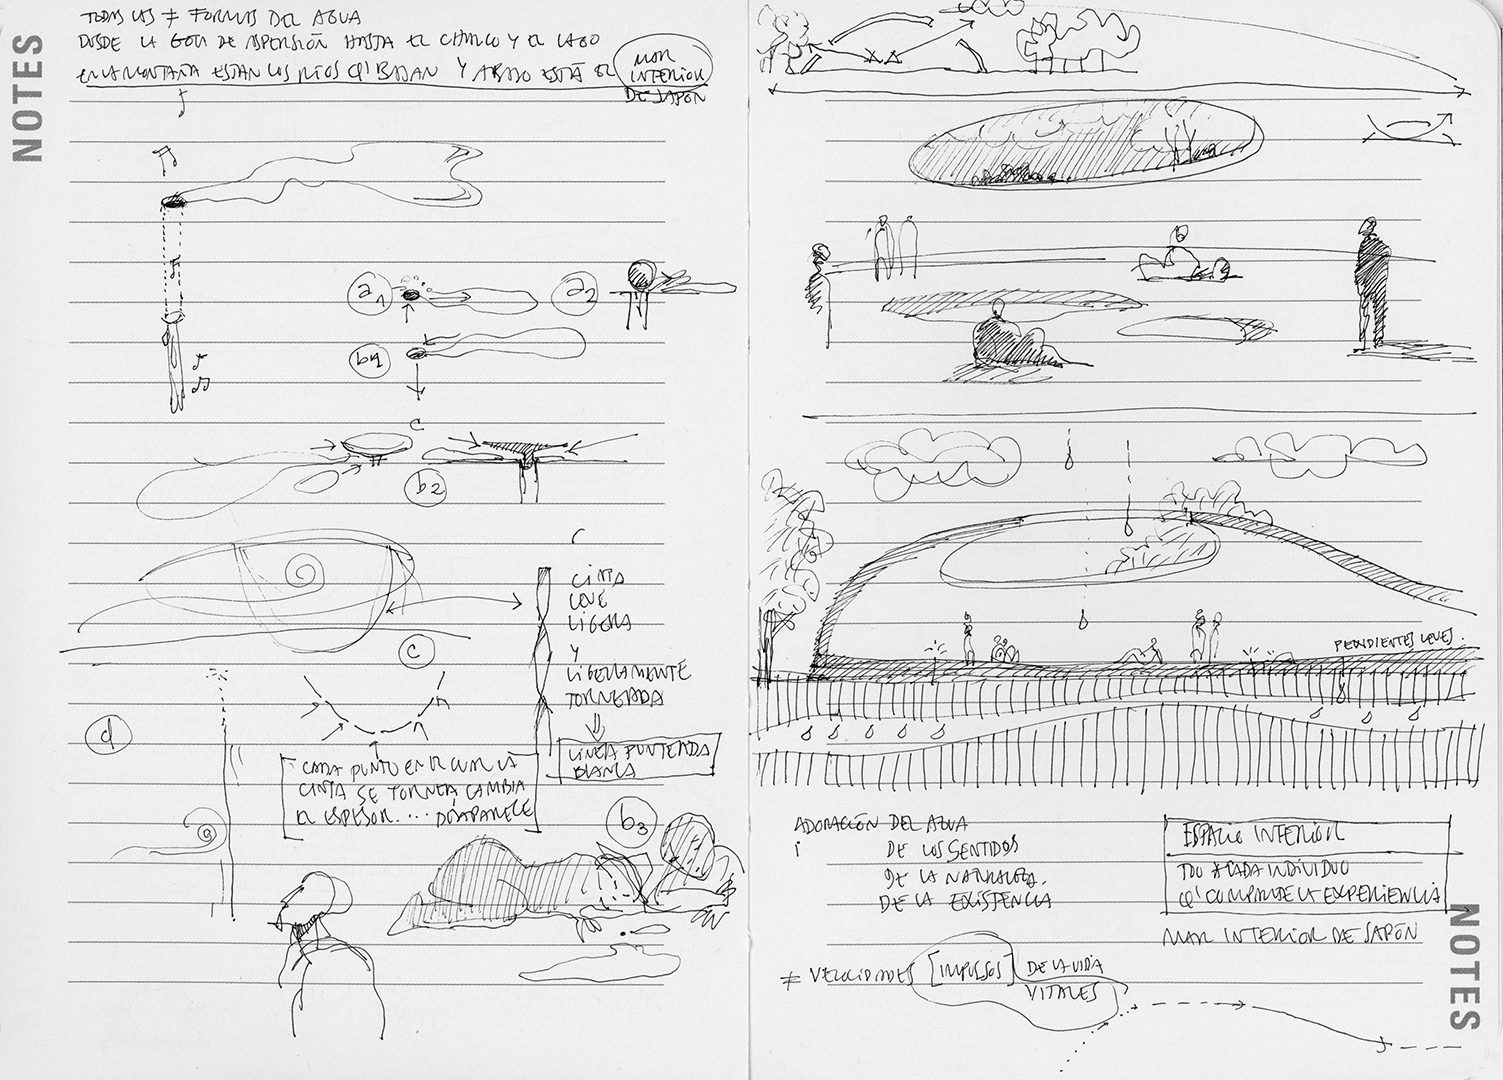 NOTES
TODAS LAS ≠ FORMAS DEL AGUA
DESDE LA GOTA DE ASPERSIÓN HASTA EL CHARCO Y EL LAGO
EN LA MONTAÑA ESTÁN LOS RÍOS Q' BAJAN Y ABAJO ESTÁ EL MAR
INTERIOR
DE JAPÓN
a1
a2
b1
c
b2
CINTA
LEVE
LIGERA
Y
LIGERAMENTE
TORNEADA
LÍNEA PUNTEADA
BLANCA
c
d
CADA PUNTO EN EL CUAL LA
CINTA SE TORNEA, CAMBIA
EL ESPESOR.... DESAPARECE
b3
PENDIENTES LEVES.
ADORACIÓN DEL AGUA
DE LOS SENTIDOS
DE LA NATURALEZA.
DE LA EXISTENCIA
ESPACIO INTERIOR
CADA INDIVIDUO
Q' COMPRENDE LA EXPERIENCIA
MAR INTERIOR DE JAPÓN
≠ VELOCIDADES [IMPULSOS] DE LA VIDA
VITALES
NOTES